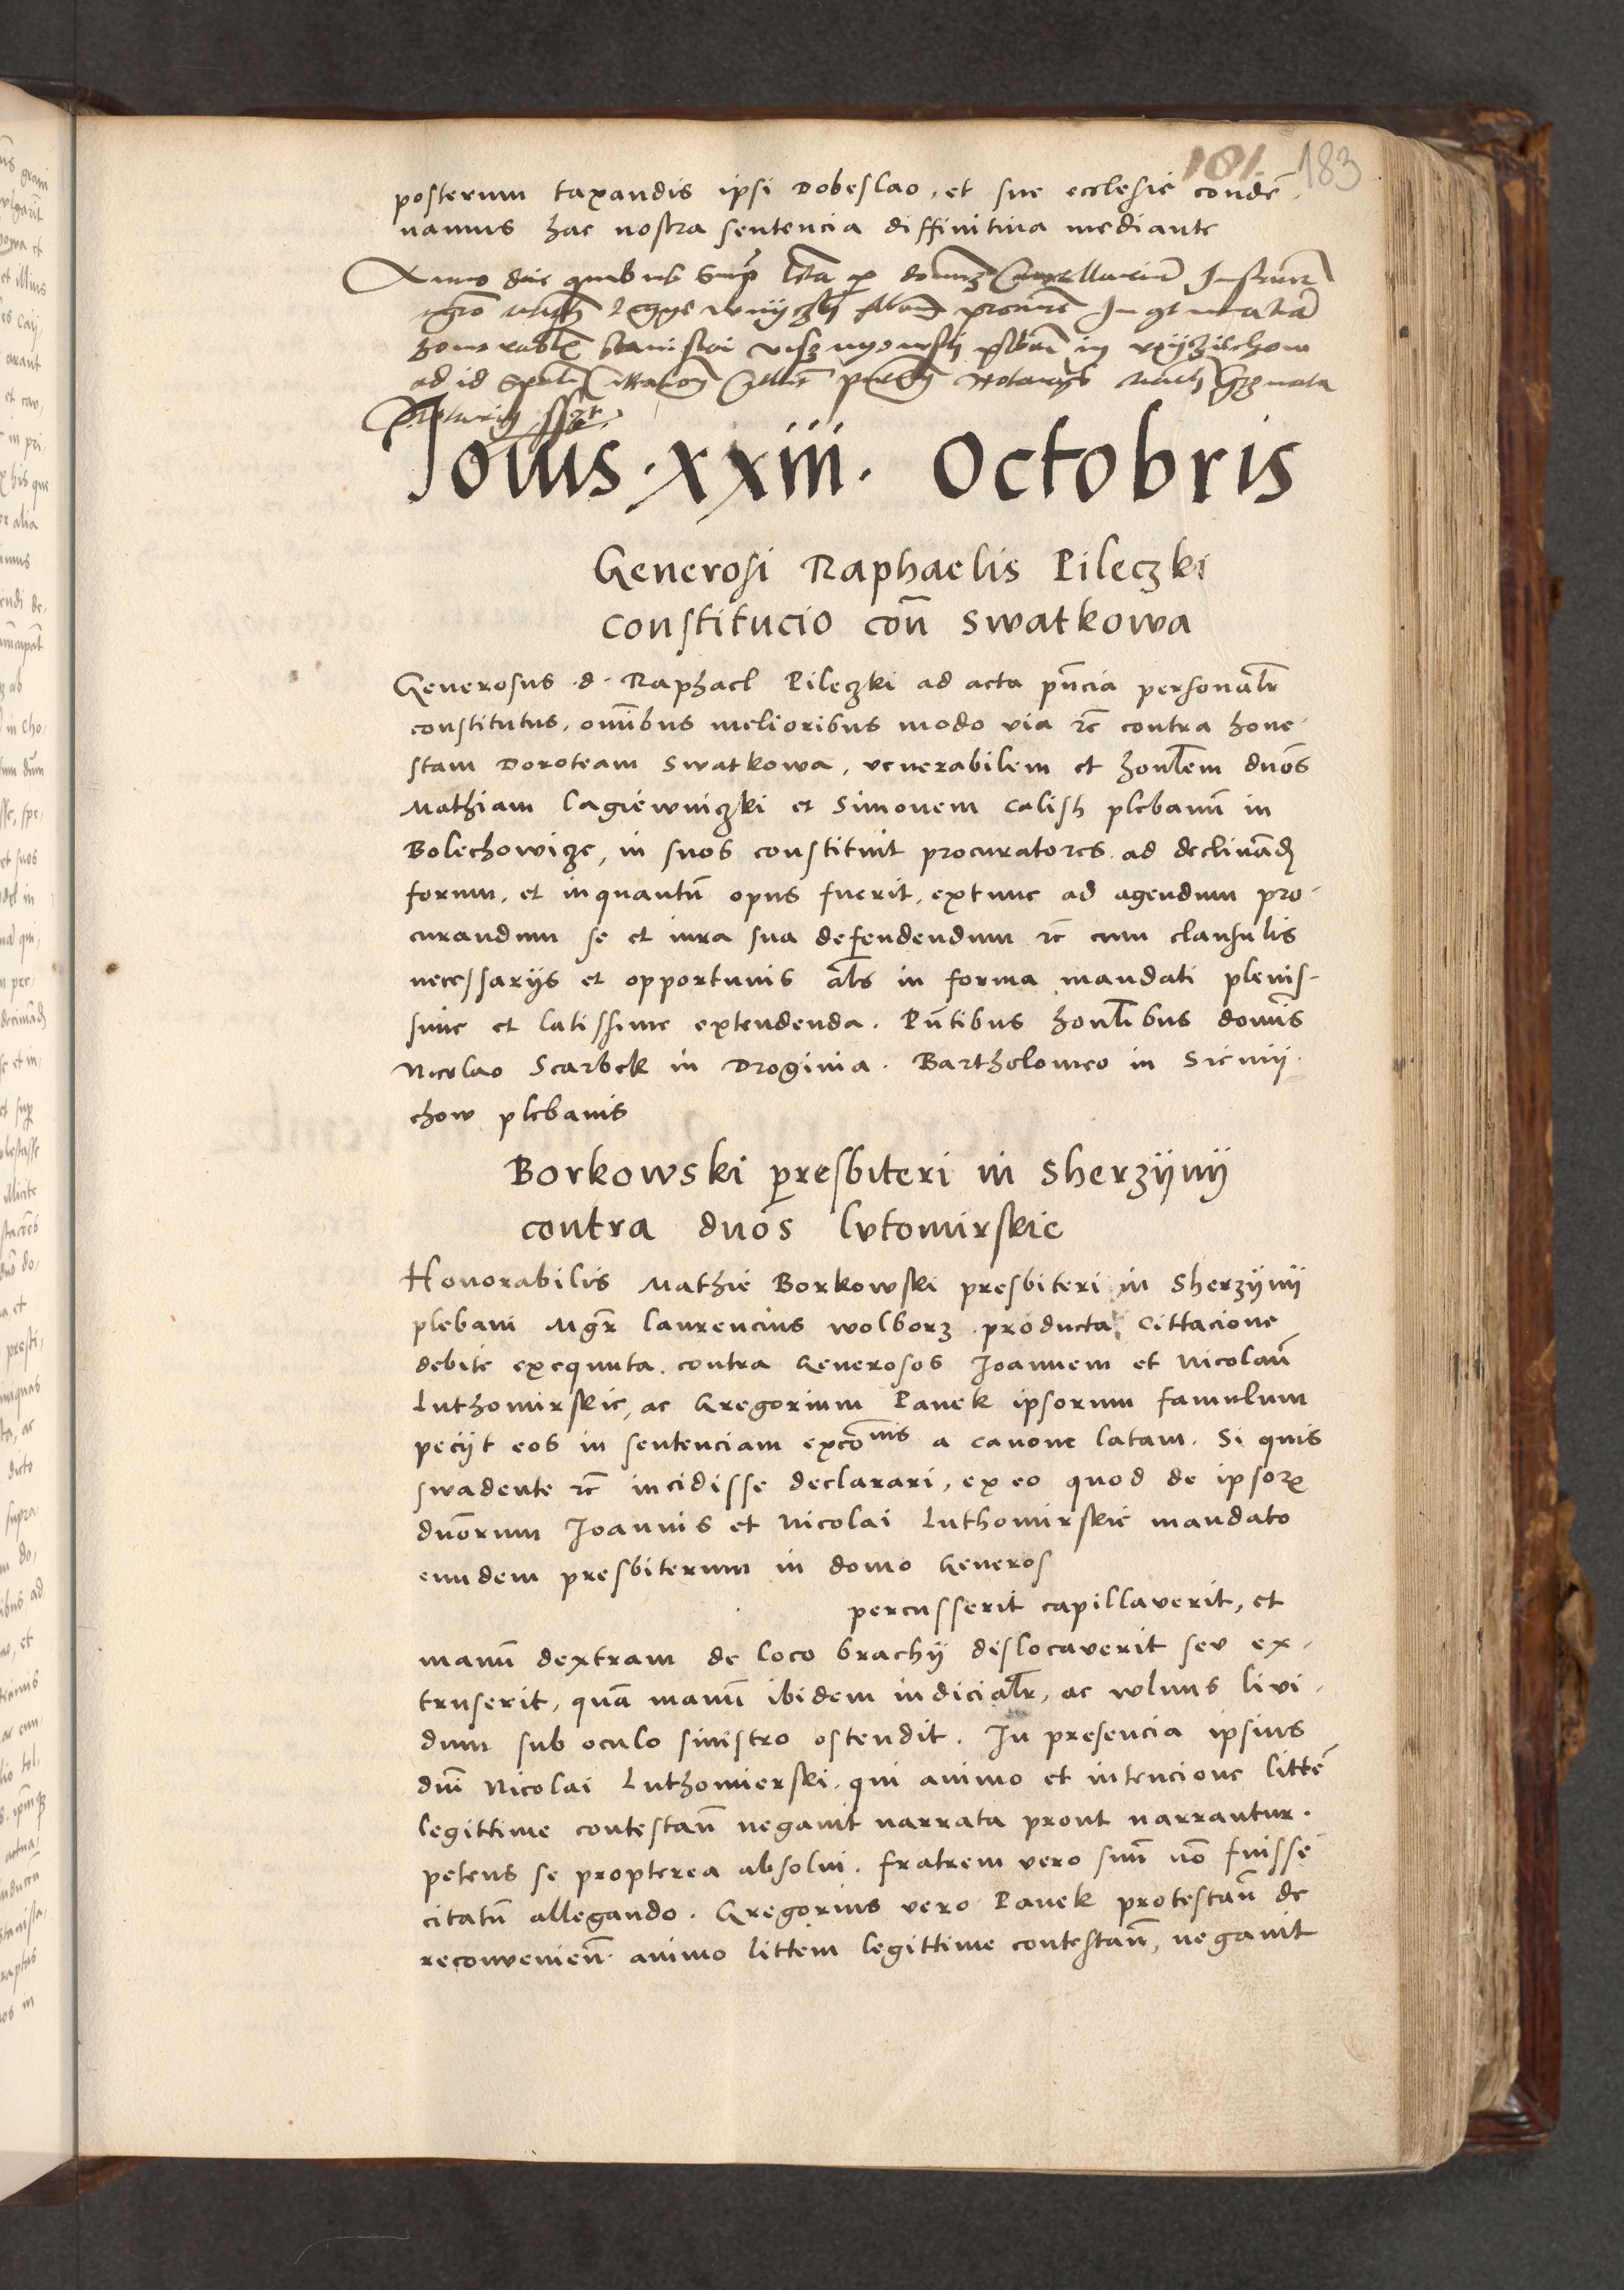 101. 183
posterum taxandis ipsi Dobeslao, et sue ecclesie conde͞
namus hac nostra sentencia diffinitiva mediante
Anno die quibus sup͞ l͞ta p͞ domu͞
honorabil͞ Stanislai in
ad id Notarys
Iouis · xxiii · Octobris
Generosi Raphaelis Pileczki
constitucio con͞ Swatkowa
Generosus ·d· Raphael Pileczki ad acta pn͞cia personal͞r
constitutus, omi͞bus melioribus modo via rc͞ contra hone-
stam Doroteam Swatkowa, venerabilem et honl͞em dno͞s
Mathiam Lagiewniczki et Simonem Calish plebanu͞ in
Bolechowicze, in suos constituit procuratores ad declinan͞d
forum, et inquantu͞ opus fuerit, extunc ad agendum pro-
curandum se et iura sua defendendum rc͞ cum clausulis
necessarijs et opportunis al͞s in forma mandati plenis-
sime et latissime extendenda. Pn͞tibus honl͞ibus domi͞s
Nicolao Scarbek in Droginia. Bartholomeo in Siemij-
chow plebanis
Borkowski presbiteri in Sherzÿnÿ
contra dno͞s Lutomirskie
Honorabilis Mathie Borkowski presbiteri in Sherzÿnÿ
plebani Mg͞r Laurencius Wolborz producta Cittacione
debite exequuta contra Generosos Joannem et Nicolau͞
Luthomirskie, ac Gregorium Panek ipsorum famulum
pecijt eos in sentenciam exco͞nis a canone latam. Si quis
swadente rc͞ incidisse declarari, ex eo quod de ipsorꝝ
dno͞rum Joannis et Nicolai Luthomirskie mandato
eundem presbiterum in domo Generos
percusserit capillaverit, et
manu͞ dextram de loco brachij dislocaverit seu ex-
truserit, qua͞ manu͞ ibidem iudicial͞r, ac wlnus livi-
dum sub oculo sinistro ostendit. In presencia ipsius
dni͞ Nicolai Luthomierski, qui animo et intencione litte͞
legittime contestan͞ negavit narrata prout narrantur.
petens se propterea absolui. fratrem vero suu͞ no͞ fuisse
citatu͞ allegando. Gregorius vero Panek protestan͞ de
reconvenien͞ animo littem legittime contestan͞, negavit